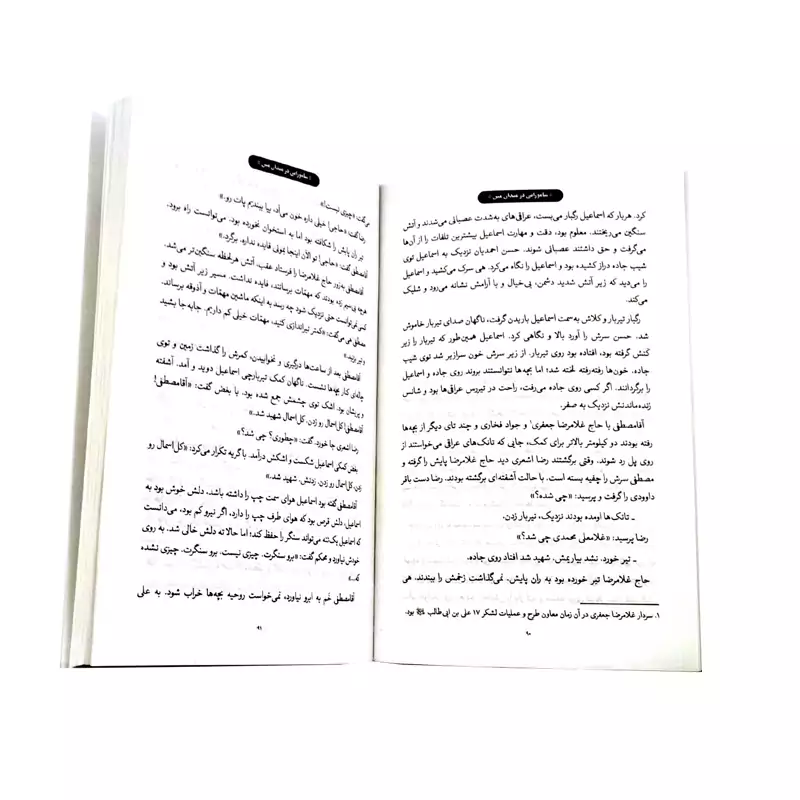 سامورایی در میدان مین
کرد. هربار که اسماعیل رگبار می‌بست، عراقی‌های به‌شدت عصبانی می‌شدند و آتش
سنگین می‌ریختند. معلوم بود، دقت و مهارت اسماعیل بیشترین تلفات را از آن‌ها
می‌گرفت و حق داشتند عصبانی شوند. حسن احمدیان نزدیک به اسماعیل توی
شیب جاده دراز کشیده بود و اسماعیل را نگاه می‌کرد. هی سرک می‌کشید و اسماعیل
را می‌دید که زیر آتش شدید دشمن، بی‌خیال و با آرامش نشانه می‌رود و شلیک
می‌کند.
رگبار تیربار و کلاش به‌سمت اسماعیل باریدن گرفت، ناگهان صدای تیربار خاموش
شد. حسن سرش را آورد بالا و نگاهی کرد. اسماعیل همین‌طور که تیربار را زیر
کتش گرفته بود، افتاده بود روی تیربار. از زیر سرش خون سرازیر شد توی شیب
جاده. خون‌ها رفته‌رفته لخته شد؛ اما بچه‌ها نتوانستند بروند روی جاده و اسماعیل
را برگردانند. اگر کسی روی جاده می‌رفت، راحت در تیررس عراقی‌ها بود و شانس
زنده‌ماندنش نزدیک به صفر.
آقامصطفی با حاج غلامرضا جعفری۱ و جواد فخاری و چند تای دیگر از بچه‌ها
رفته بودند دو کیلومتر بالاتر برای کمک، جایی که تانک‌های عراقی می‌خواستند از
روی پل رد شوند. وقتی برگشتند رضا اشعری دید حاج غلامرضا پایش را گرفته و
مصطفی سرش را چفیه بسته است. با حالت آشفته‌ای برگشته بودند. رضا دست باقر
داوودی را گرفت و پرسید: «چی شده؟»
ـ تانک‌ها اومده بودند نزدیک، تیربار زدن.
رضا پرسید: «غلامعلی محمدی چی شد؟»
ـ تیر خورد. نشد بیاریمش، شهید شد افتاد روی جاده.
حاج غلامرضا تیر خورده بود به ران پایش. نمی‌گذاشت زخمش را ببندند. هی
۱. سردار غلامرضا جعفری در آن زمان معاون طرح و عملیات لشکر ۱۷ علی بن ابی‌طالب بود.
۹۰
سامورایی در میدان مین
می‌گفت: «چیزی نیست!»
رضا گفت: «حاجی! خیلی داره خون می‌آد، بیا ببندیم پات رو.»
تیر ران پایش را شکافته بود اما به استخوان نخورده بود. می‌توانست راه برود.
آقامصطفی گفت: «حاجی! تو الآن اینجا بمونی فایده نداره. برگرد.»
آقامصطفی به‌زور حاج غلامرضا را فرستاد عقب. آتش هرلحظه سنگین‌تر می‌شد.
هرچه بی‌سیم زده بودند که مهمات برسانند، فایده نداشت. مسیر زیر آتش بود و
کسی نمی‌توانست حتی نزدیک شود چه رسد به اینکه ماشین مهمات و آذوقه برساند.
مصطفی هی می‌گفت: «کمتر تیراندازی کنید، مهمات خیلی کم داریم. جابه جا بشید
و تیر بزنید.»
آقامصطفی بعد از ساعت‌ها درگیری و نخوابیدن، کمرش را گذاشت زمین و توی
چاله‌ای کنار بچه‌ها نشست. ناگهان کمک تیربارچی اسماعیل دوید و آمد. آشفته
و پریشان بود. اشک توی چشمش جمع شده بود. با بغض گفت: «آقامصطفی!
آقامصطفی! کل‌اسمال رو زدن. کل‌اسمال شهید شد.»
رضا اشعری جا خورد. گفت: «چطوری؟ چی شد؟»
بغض کمکی اسماعیل شکست و اشکش درآمد. با گریه تکرار می‌کرد: «کل‌اسمال رو
زدن. کل‌اسمال رو زدن. زدنش. شهید شد.»
آقامصطفی گفته بود اسماعیل هوای سمت چپ را داشته باشد. دلش خوش بود به
اسماعیل. دلش قرص بود که هوای طرف چپ را دارد. اگر نیرو کم بود، می‌دانست
که اسماعیل یک‌تنه می‌تواند سنگر را حفظ کند؛ اما حالا ته دلش خالی شد. به روی
خوش نیاورد و محکم گفت: «برو سنگرت. چیزی نیست. برو سنگرت. چیزی نشده
که...»
آقامصطفی خم به ابرو نیاورد، نمی‌خواست روحیه بچه‌ها خراب شود. به علی
۹۱